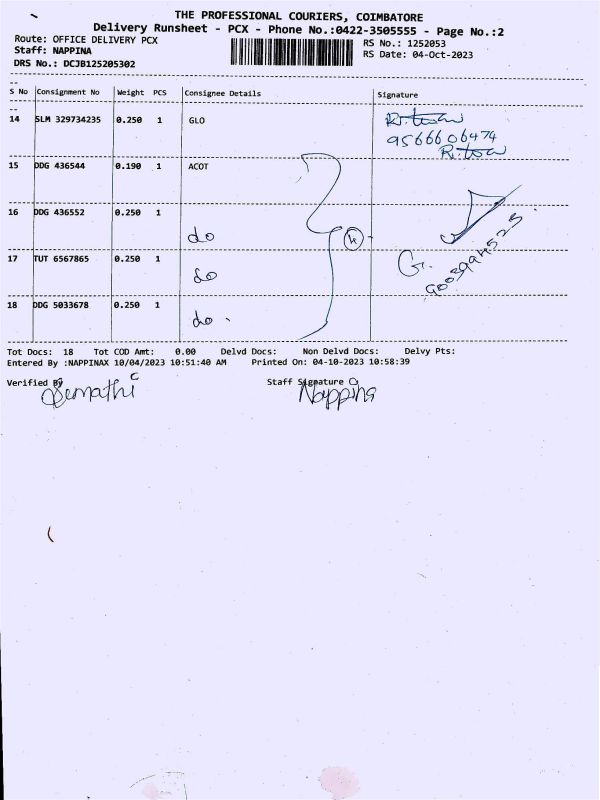 THE PROFESSIONAL COURIERS, COIMBATORE
Delivery Runsheet - PCX - Phone No.:0422-3505555 - Page No.:2
Route: OFFICE DELIVERY PCX
RS No.: 1252053
Staff: NAPPINA
RS Date: 04-Oct-2023
DRS No.: DCJB125205302
S No Consignment No Weight PCS Consignee Details Signature
14 SLM 329734235 0.250 1 GLO
9566606474
15 DDG 436544 0.190 1 ACOT
16 DDG 436552 0.250 1 do
4
17 TUT 6567865 0.250 1 do
G.
18 DDG 5033678 0.250 1 do.
Tot Docs: 18 Tot COD Amt: 0.00 Delvd Docs: Non Delvd Docs: Delvy Pts:
Entered By :NAPPINAX 10/04/2023 10:51:40 AM Printed On: 04-10-2023 10:58:39
Verified By Staff Signature
Nappina